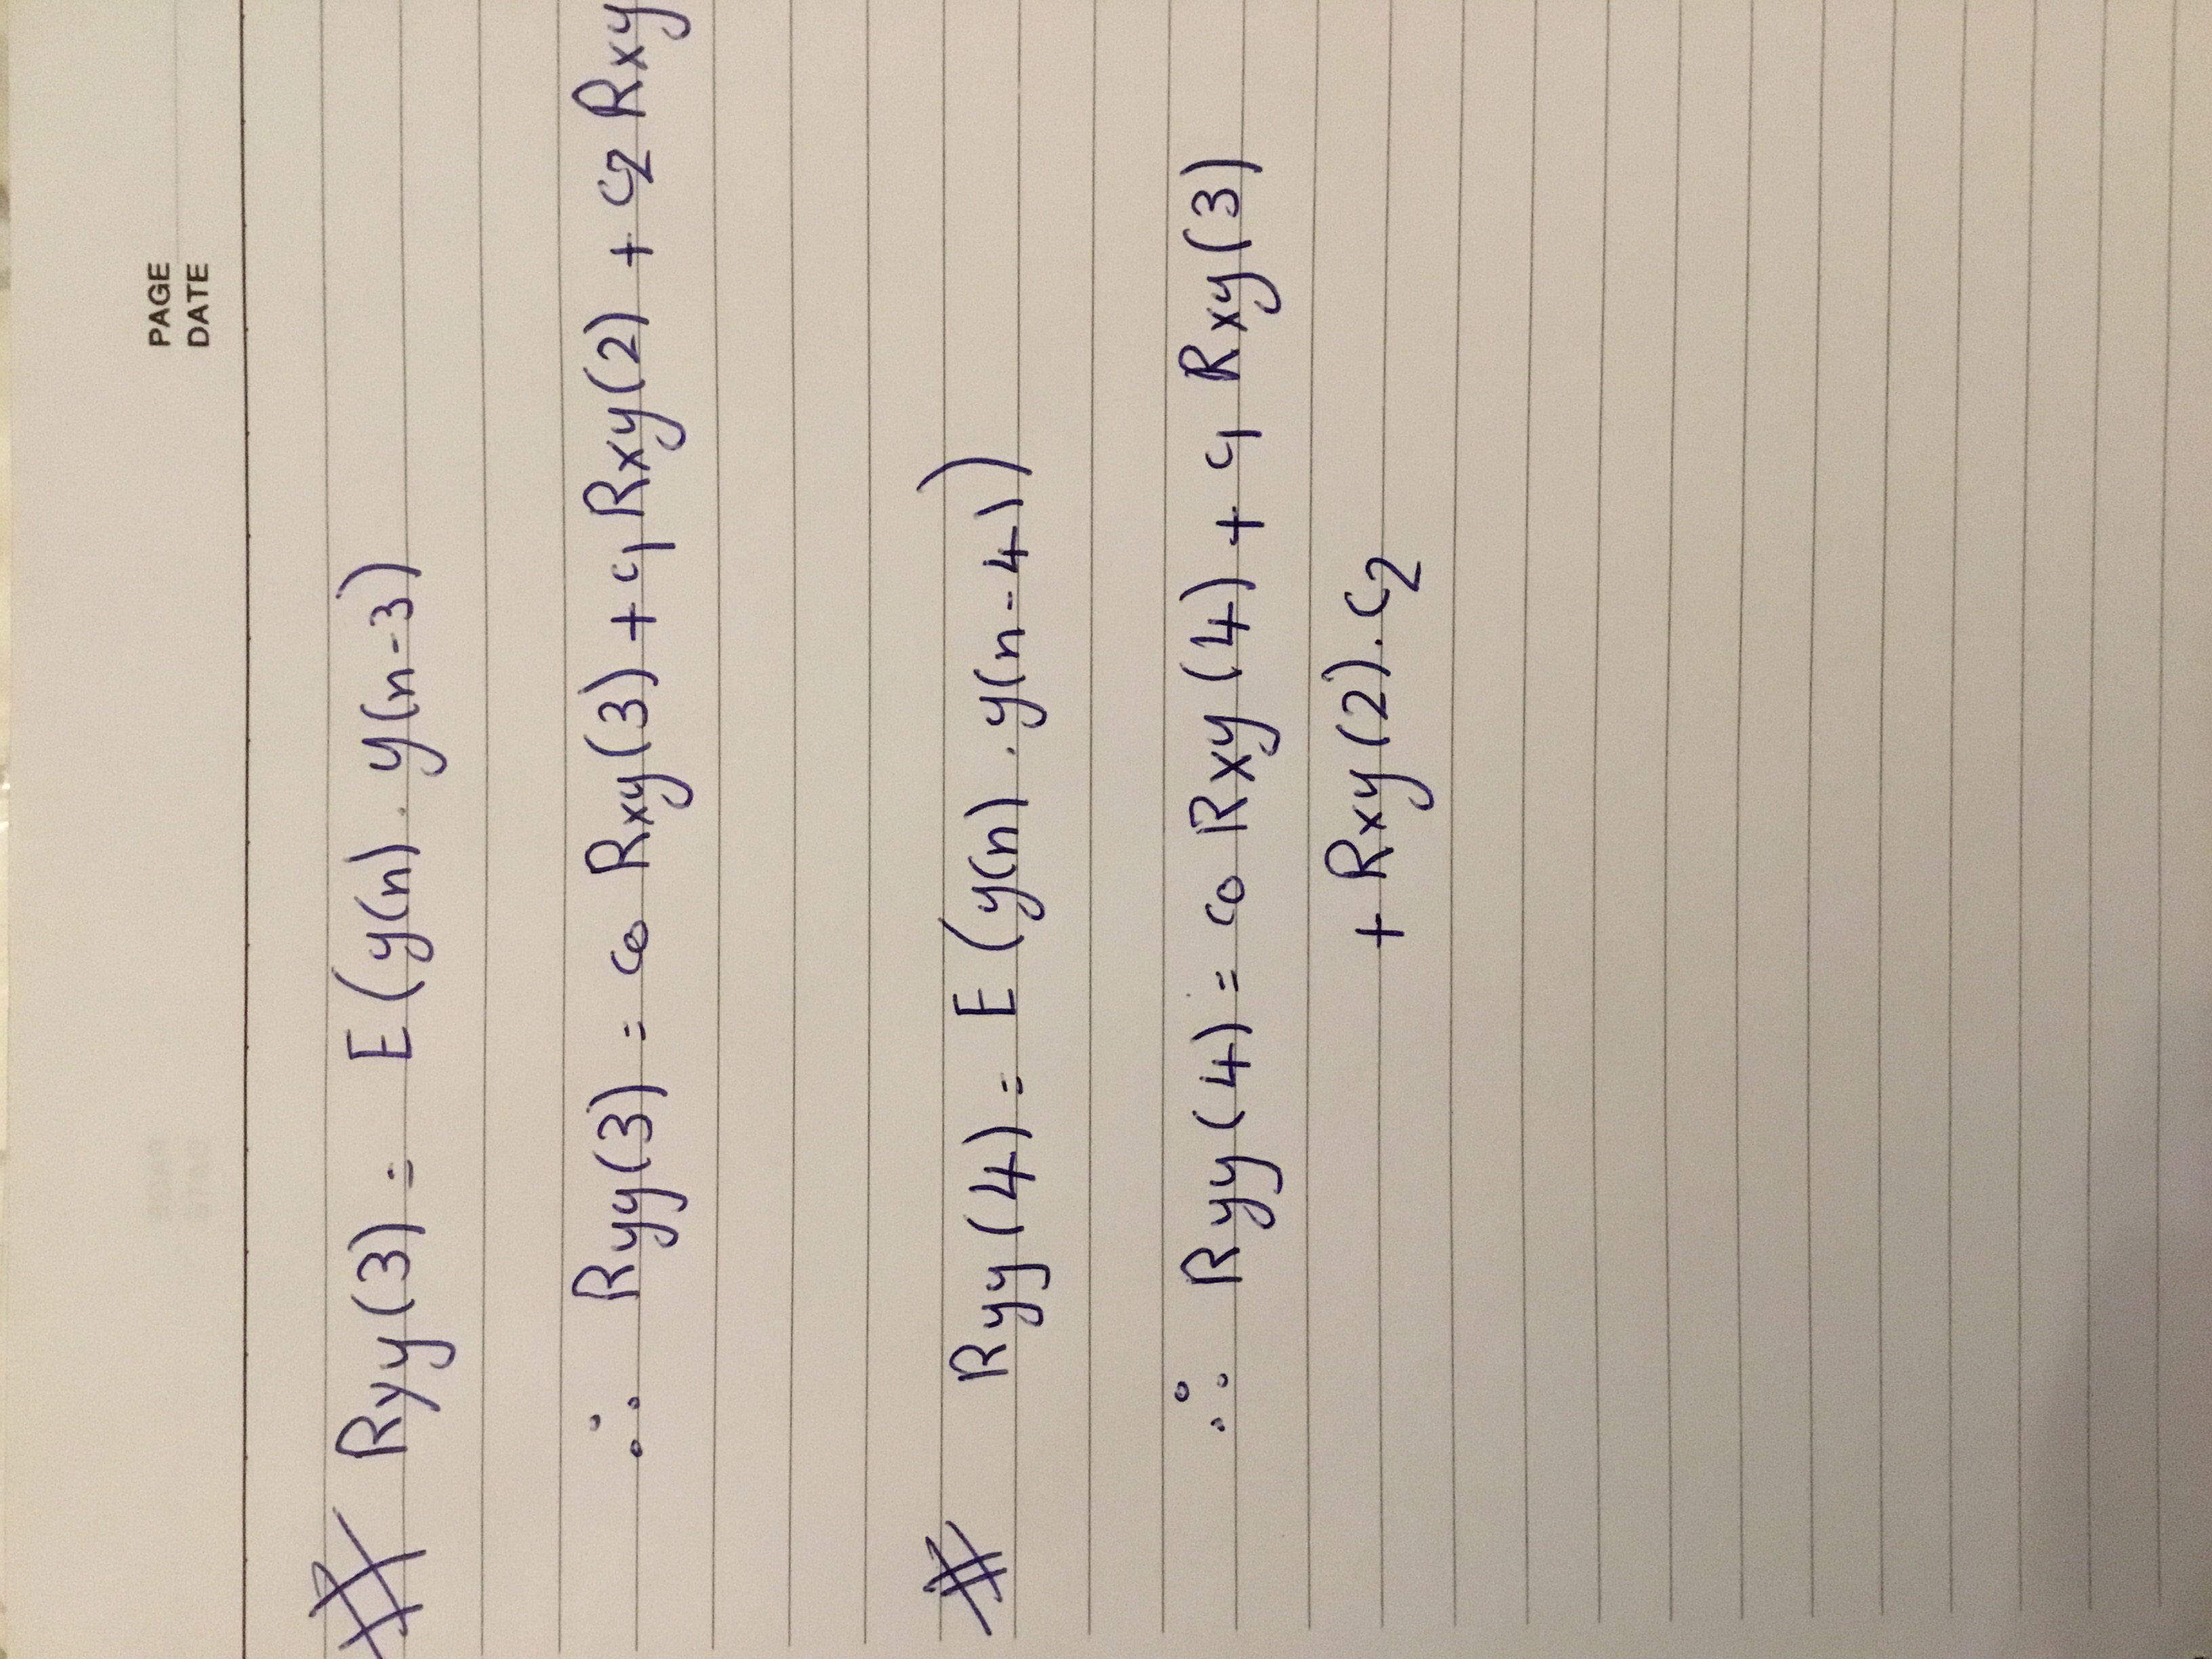 PAGE
DATE
# Ryy(3) = E(y(n) . y(n-3)
∴ Ryy(3) = c0 Rxy(3) + c1 Rxy(2) + c2 Rxy
# Ryy(4) = E(y(n) . y(n-4))
∴ Ryy(4) = c0 Rxy(4) + c1 Rxy(3)
+ Rxy(2). c2